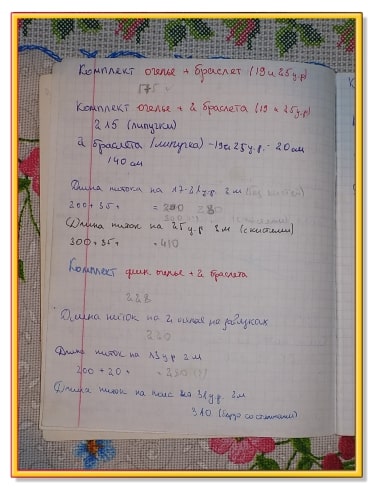 Комплект очелье + браслет (19 и 25 у.р)
175
Комплект очелье + 2 браслета (19 и 25 у.р)
215 (липучки)
2 браслета (липучка) - 19 и 25 у.р. - 20 см
140 см
Длина ниток на 17-21 у.р 2 м
200 + 35 + =
Длина ниток на 25 у.р 2 м (с кистями)
300 + 35 + = 410
Комплект очелье + 2 браслета
228
Длина ниток на 2 на завязках
220
Длина ниток на 2 м
200 + 20 + = 250
Длина ниток на пояс на 31 у.р. 2 м
310